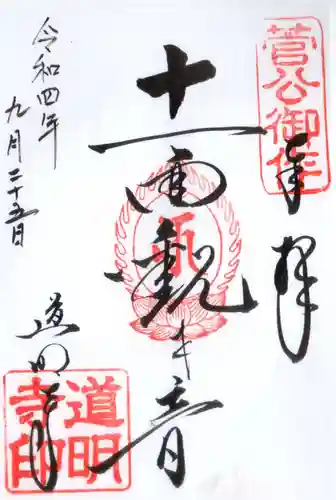 奉拝
菅公御作
十一面観世音
道明寺
道明寺印
令和四年
九月二十五日